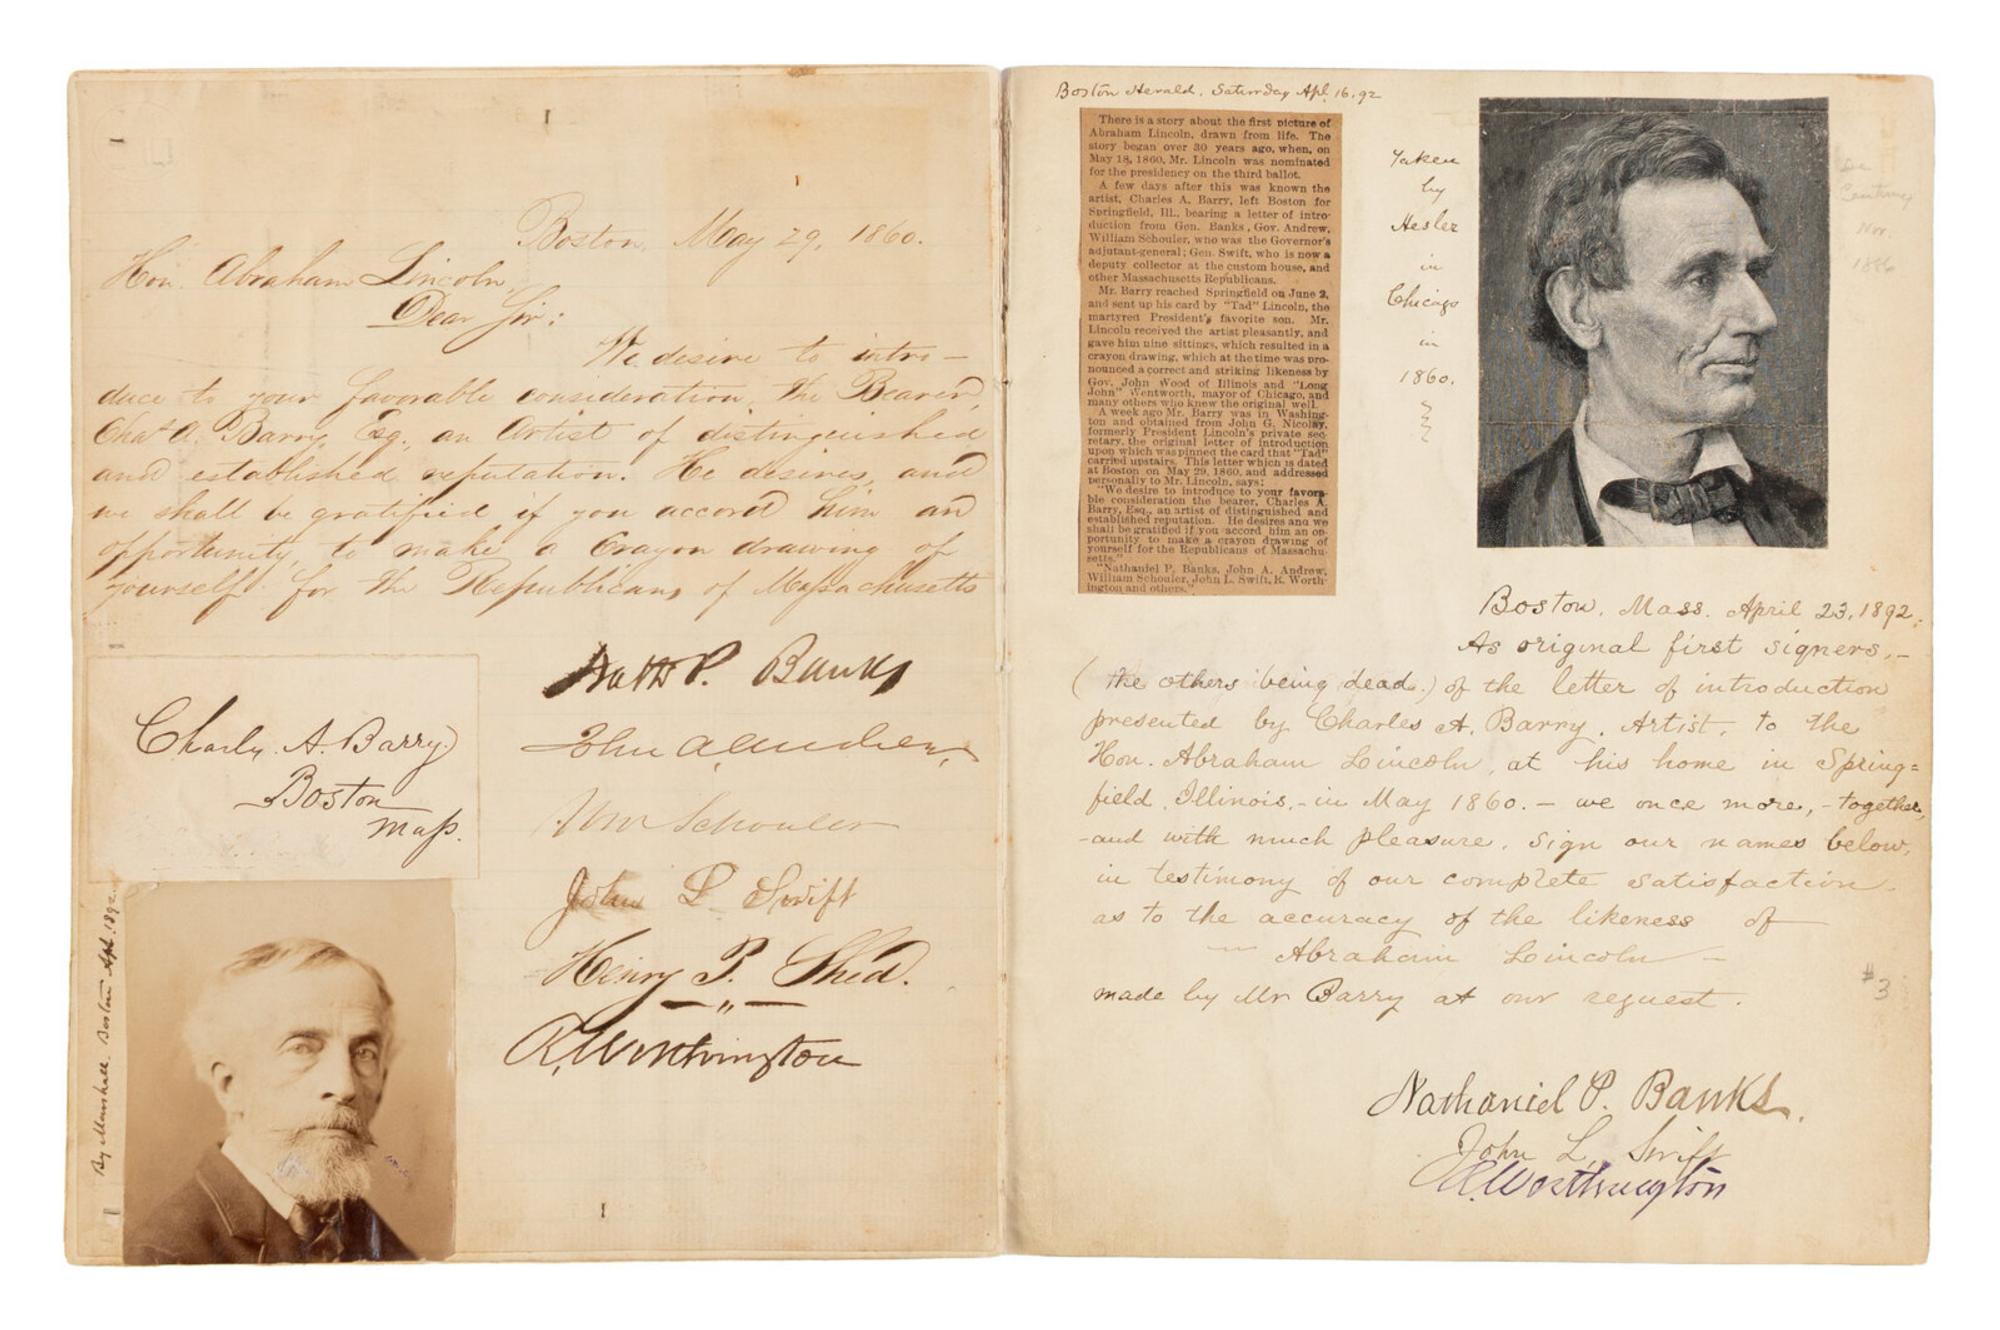 Boston, May 29, 1860.
Hon. Abraham Lincoln,
Dear Sir:
We desire to intro-
duce to your favorable consideration, the Bearer,
Chas. A. Barry, Esq., an Artist of distinguished
and established reputation. He desires, and
we shall be gratified if you accord him an
opportunity, to make a Crayon drawing of
yourself for the Republicans of Massachusetts
Nathl P. Banks
John A. Andrew,
Wm Schouler
John L Swift
Henry P. Shed.
— " —
R. Worthington
Charles A. Barry
Boston
Mass.
By Marshall. Boston Apl. 1892.
Boston Herald, Saturday Apl. 16, 92
There is a story about the first picture of
Abraham Lincoln, drawn from life. The
story began over 30 years ago, when, on
May 18, 1860, Mr. Lincoln was nominated
for the presidency on the third ballot.
A few days after this was known the
artist, Charles A. Barry, left Boston for
Springfield, Ill., bearing a letter of intro-
duction from Gen. Banks, Gov. Andrew,
William Schouler, who was the Governor's
adjutant-general; Gen. Swift, who is now a
deputy collector at the custom house, and
other Massachusetts Republicans.
Mr. Barry reached Springfield on June 2,
and sent up his card by "Tad" Lincoln, the
martyred President's favorite son. Mr.
Lincoln received the artist pleasantly, and
gave him nine sittings, which resulted in a
crayon drawing, which at the time was pro-
nounced a correct and striking likeness by
Gov. John Wood of Illinois and "Long
John" Wentworth, mayor of Chicago, and
many others who knew the original well.
A week ago Mr. Barry was in Washing-
ton and obtained from John G. Nicolay,
formerly President Lincoln's private sec-
retary, the original letter of introduction
upon which was pinned the card that "Tad"
carried upstairs. This letter which is dated
at Boston on May 29, 1860, and addressed
personally to Mr. Lincoln, says:
"We desire to introduce to your favora-
ble consideration the bearer, Charles A.
Barry, Esq., an artist of distinguished and
established reputation. He desires and we
shall be gratified if you accord him an op-
portunity to make a crayon drawing of
yourself for the Republicans of Massachu-
setts."
"Nathaniel P. Banks, John A. Andrew,
William Schouler, John L. Swift, R. Worth-
ington and others."
Taken
by
Hesler
in
Chicago
in
1860.
See
Century
Nov.
1886
Boston, Mass. April 23, 1892.
As original first signers,-
(the others being dead.) of the letter of introduction
presented by Charles A. Barry, Artist, to the
Hon. Abraham Lincoln, at his home in Spring=
field, Illinois,- in May 1860. — we once more, - together,
-and with much pleasure, sign our names below,
in testimony of our complete satisfaction
as to the accuracy of the likeness of
— Abraham Lincoln —
made by Mr Barry at our request.
#3
Nathaniel P. Banks.
John L. Swift
R. Worthington